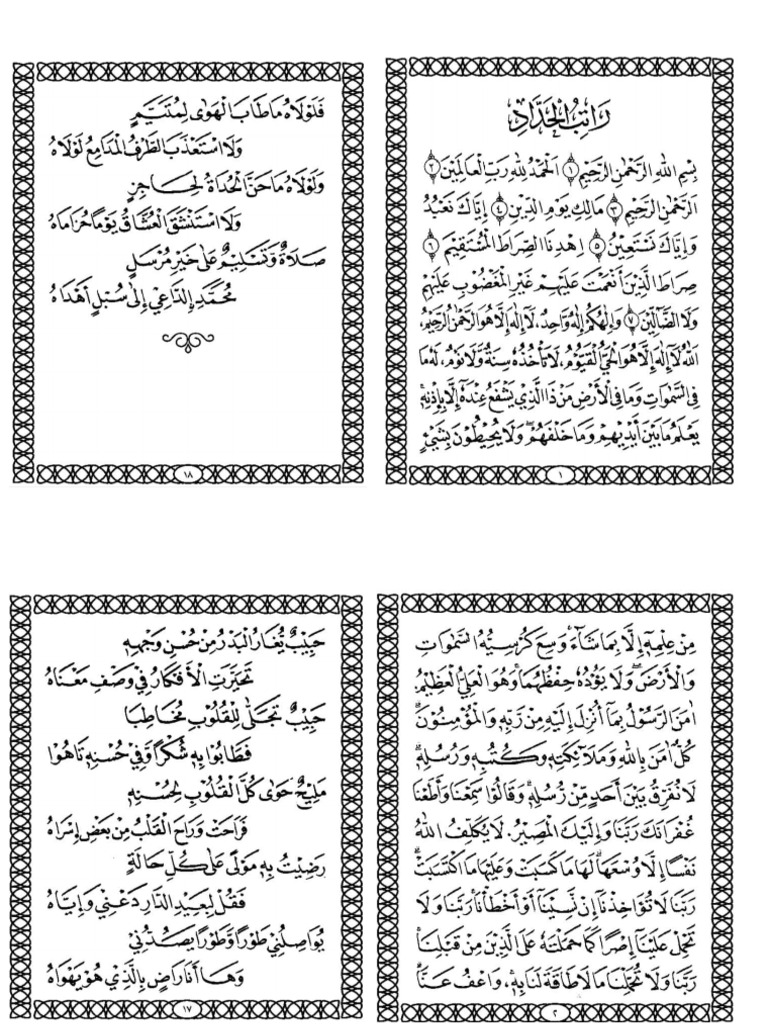 رَاتِبُ الْحَدَّادِ
بِسْمِ اللهِ الرَّحْمٰنِ الرَّحِيْمِ ﴿١﴾ اَلْحَمْدُ لِلّٰهِ رَبِّ الْعَالَمِيْنَ ﴿٢﴾
اَلرَّحْمٰنِ الرَّحِيْمِ ﴿٣﴾ مَالِكِ يَوْمِ الدِّيْنِ ﴿٤﴾ إِيَّاكَ نَعْبُدُ
وَإِيَّاكَ نَسْتَعِيْنُ ﴿٥﴾ اِهْدِنَا الصِّرَاطَ الْمُسْتَقِيْمَ ﴿٦﴾
صِرَاطَ الَّذِيْنَ أَنْعَمْتَ عَلَيْهِمْ غَيْرِ الْمَغْضُوْبِ عَلَيْهِمْ
وَلَا الضَّالِّيْنَ ﴿٧﴾ وَإِلٰهُكُمْ إِلٰهٌ وَاحِدٌ، لَا إِلٰهَ إِلَّا هُوَ الرَّحْمٰنُ الرَّحِيْمُ،
اَللهُ لَا إِلٰهَ إِلَّا هُوَ الْحَيُّ الْقَيُّوْمُ، لَا تَأْخُذُهُ سِنَةٌ وَلَا نَوْمٌ، لَهُ مَا
فِى السَّمٰوَاتِ وَمَا فِى الْأَرْضِ مَنْ ذَا الَّذِيْ يَشْفَعُ عِنْدَهُ إِلَّا بِإِذْنِهِ،
يَعْلَمُ مَا بَيْنَ أَيْدِيْهِمْ وَمَا خَلْفَهُمْ وَلَا يُحِيْطُوْنَ بِشَيْءٍ
١
فَلَوْلَاهُ مَا طَابَ الْهَوٰى لِمُتَيَّمٍ
وَلَا اسْتَعْذَبَ الطَّرْفُ الْمَدَامِعُ لَوْلَاهُ
وَلَوْلَاهُ مَا حَنَّ الْحُدَاةُ لِحَاجِزٍ
وَلَا اسْتَنْشَقَ الْعُشَّاقُ يَوْمًا خُزَامَاهُ
صَلَاةٌ وَتَسْلِيْمٌ عَلٰى خَيْرِ مُرْسَلٍ
مُحَمَّدٍ اِلدَّاعِيْ إِلٰى سُبْلِ أَهْدَاهُ
١٨
مِنْ عِلْمِهِ إِلَّا بِمَا شَآءَ وَسِعَ كُرْسِيُّهُ السَّمٰوَاتِ
وَالْأَرْضَ وَلَا يَؤُدُهُ حِفْظُهُمَا وَهُوَ الْعَلِيُّ الْعَظِيْمُ
اٰمَنَ الرَّسُوْلُ بِمَآ أُنْزِلَ إِلَيْهِ مِنْ رَبِّهِ وَالْمُؤْمِنُوْنَ
كُلٌّ اٰمَنَ بِاللهِ وَمَلَآئِكَتِهِ وَكُتُبِهِ وَرُسُلِهِ
لَا نُفَرِّقُ بَيْنَ أَحَدٍ مِّنْ رُسُلِهِ وَقَالُوْا سَمِعْنَا وَأَطَعْنَا
غُفْرَانَكَ رَبَّنَا وَإِلَيْكَ الْمَصِيْرُ. لَا يُكَلِّفُ اللهُ
نَفْسًا إِلَّا وُسْعَهَا لَهَا مَا كَسَبَتْ وَعَلَيْهَا مَا اكْتَسَبَتْ
رَبَّنَا لَا تُؤَاخِذْنَآ إِنْ نَسِيْنَآ أَوْ أَخْطَأْنَا رَبَّنَا وَلَا
تَحْمِلْ عَلَيْنَآ إِصْرًا كَمَا حَمَلْتَهُ عَلَى الَّذِيْنَ مِنْ قَبْلِنَا
رَبَّنَا وَلَا تُحَمِّلْنَا مَا لَا طَاقَةَ لَنَا بِهِ، وَاعْفُ عَنَّا
٢
حَبِيْبٌ يُغَارُ الْبَدْرُ مِنْ حُسْنِ وَجْهِهِ
تَحَيَّرَتِ الْأَفْكَارُ فِيْ وَصْفِ مَعْنَاهُ
حَبِيْبٌ تَجَلّٰى لِلْقُلُوْبِ مُخَاطِبًا
فَطَابُوْا بِهِ سُكْرًا وَفِيْ حُسْنِهِ تَاهُوْا
مَلِيْحٌ حَوٰى كُلَّ الْقُلُوْبِ لِحُسْنِهِ
فَرَاحَتْ وَرَاحَ الْقَلْبُ مِنْ بَعْضِ إِسْرَاهُ
رَضِيْتُ بِهِ مَوْلًى عَلٰى كُلِّ حَالَةٍ
فَقُلْ لِبَعِيْدِ الدَّارِ دَعْنِيْ وَإِيَّاهُ
يُوَاصِلُنِيْ طَوْرًا وَّطَوْرًا يَصُدُّنِيْ
وَهَا أَنَا رَاضٍ بِالَّذِيْ هُوَ يَهْوَاهُ
١٧